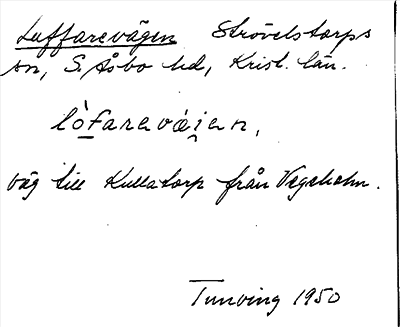 Luffarevägen Strövelstorps
sn, S. Åsbo hd, Krist. län.
lòfarevái̯en,
väg till Kullatorp från Vegeholm.
Tunving 1950